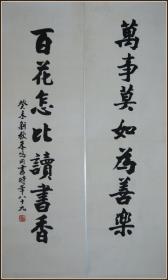 萬事莫如為善樂
百花怎比讀書香
癸未新秋
書時年八十九